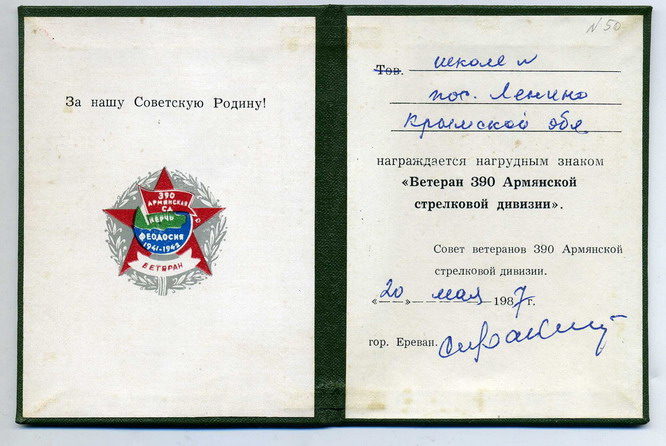 За нашу Советскую Родину!
390
АРМЯНСКАЯ
СД
КЕРЧЬ
ФЕОДОСИЯ
1941-1942
ВЕТЕРАН
N 50
Тов. школе
пос. Ленино
Крымской обл
награждается нагрудным знаком
«Ветеран 390 Армянской
стрелковой дивизии».
Совет ветеранов 390 Армянской
стрелковой дивизии.
«20» мая 1987 г.
гор. Ереван.